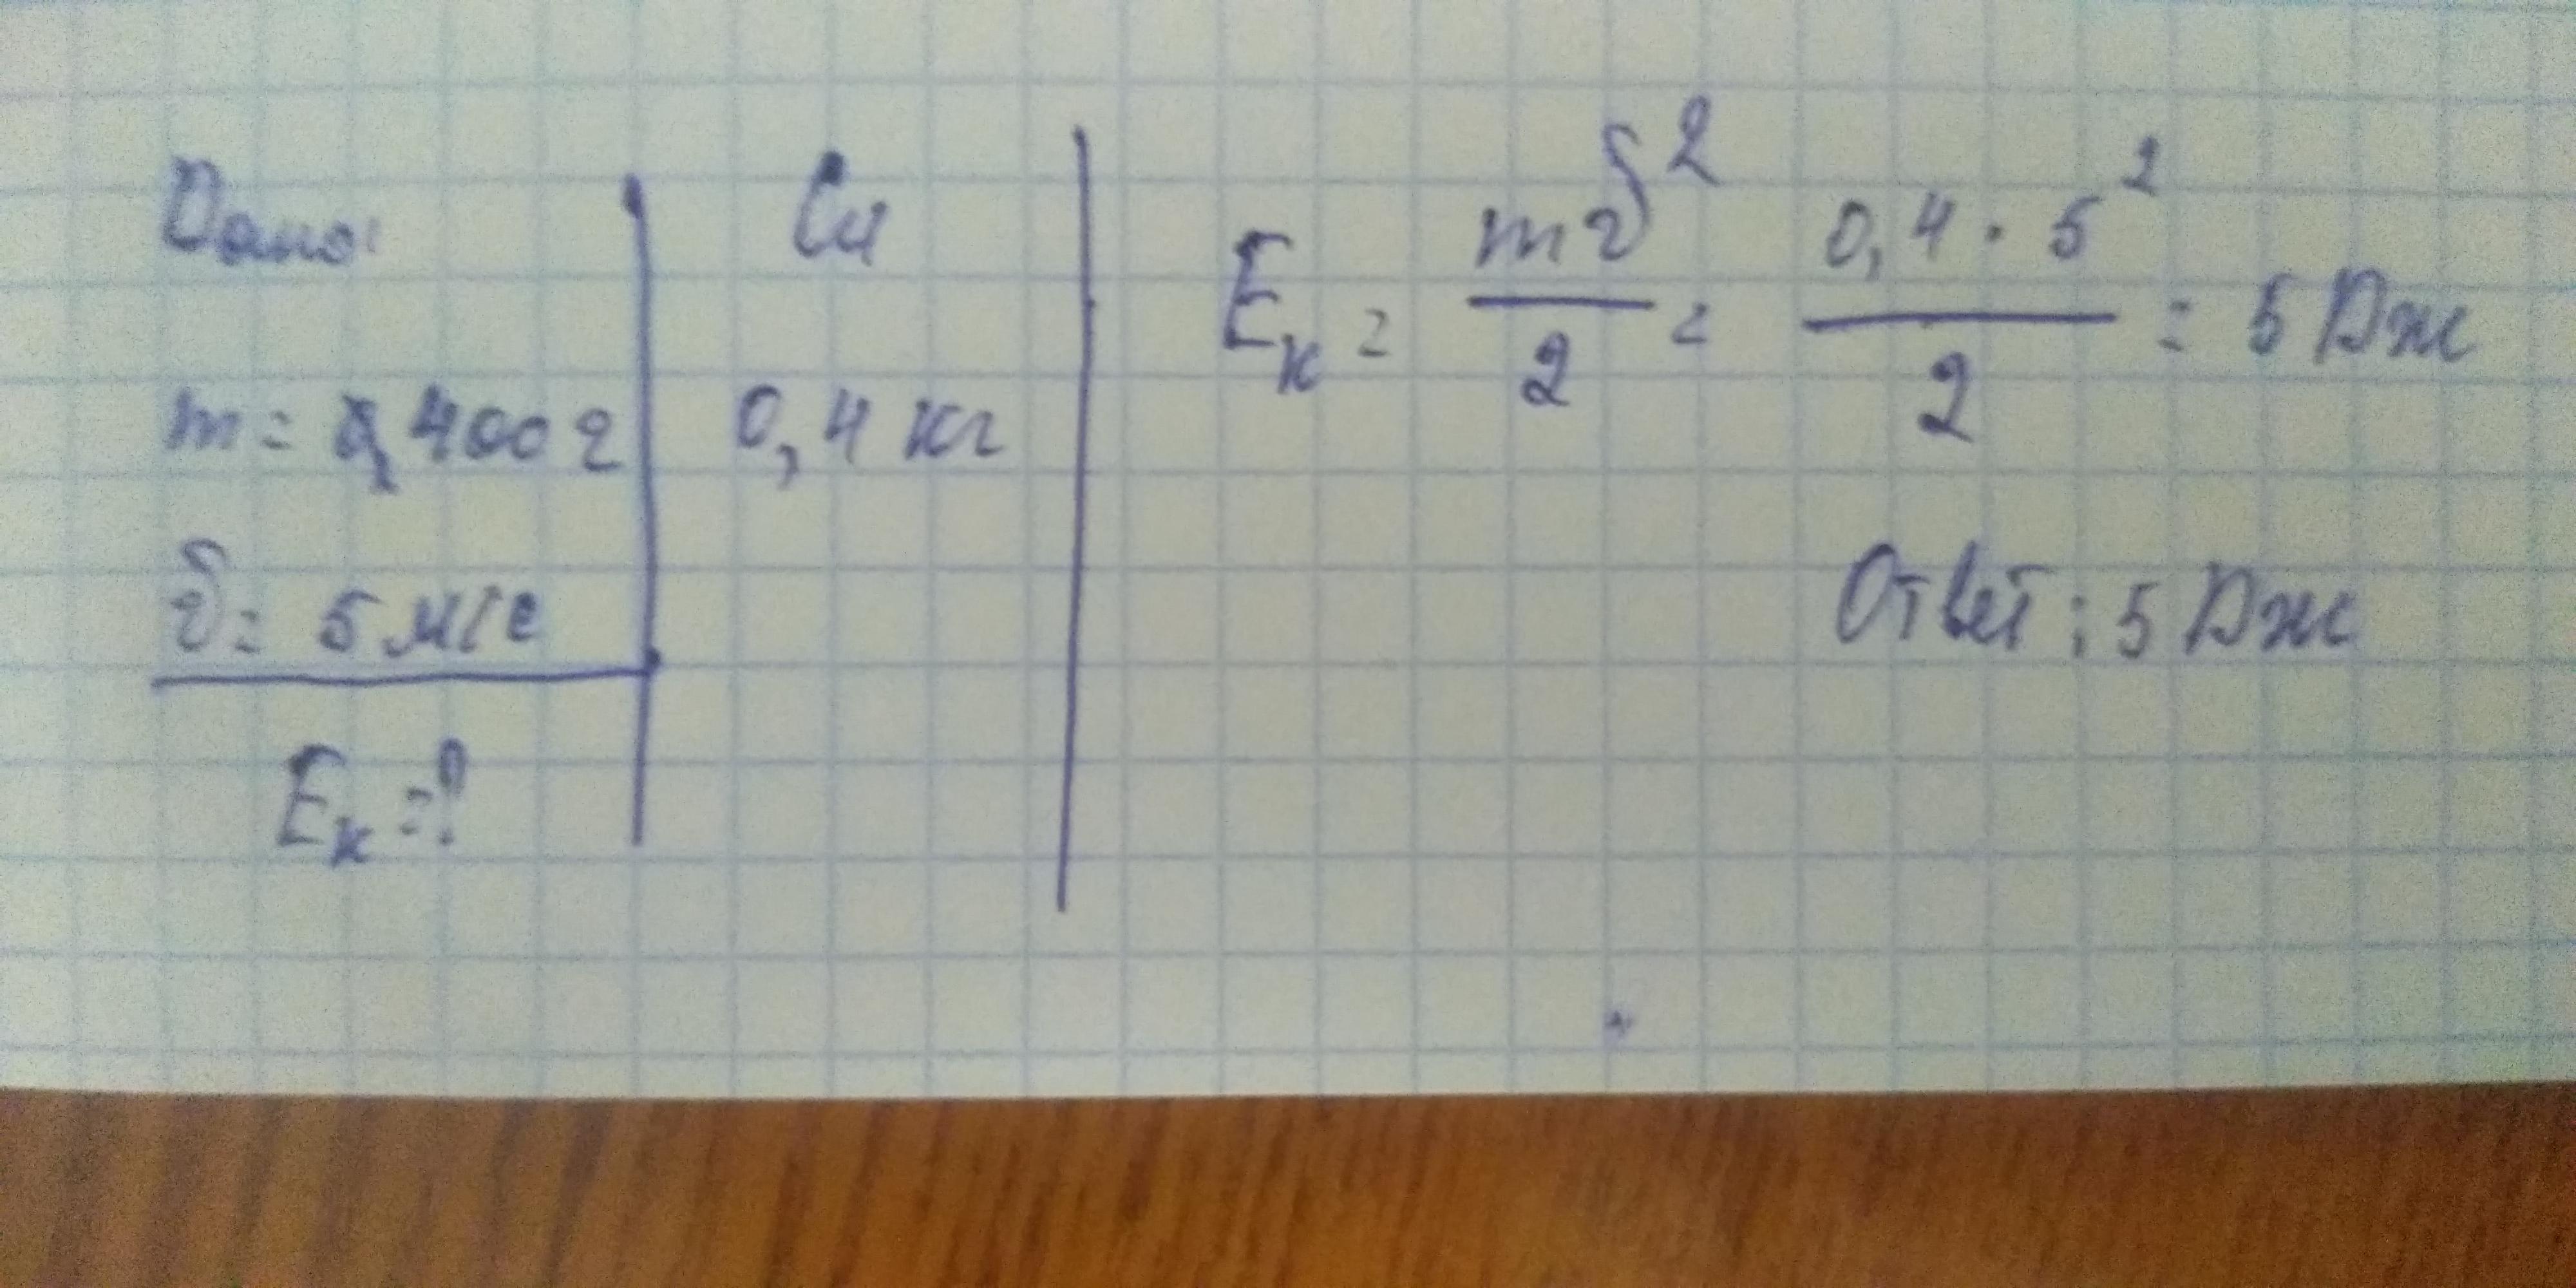 Дано:
m = 400 г
υ = 5 м/с
Eк = ?
Си
0,4 кг
Eк = mυ²/2 = 0,4 · 5²/2 = 5 Дж
Ответ: 5 Дж